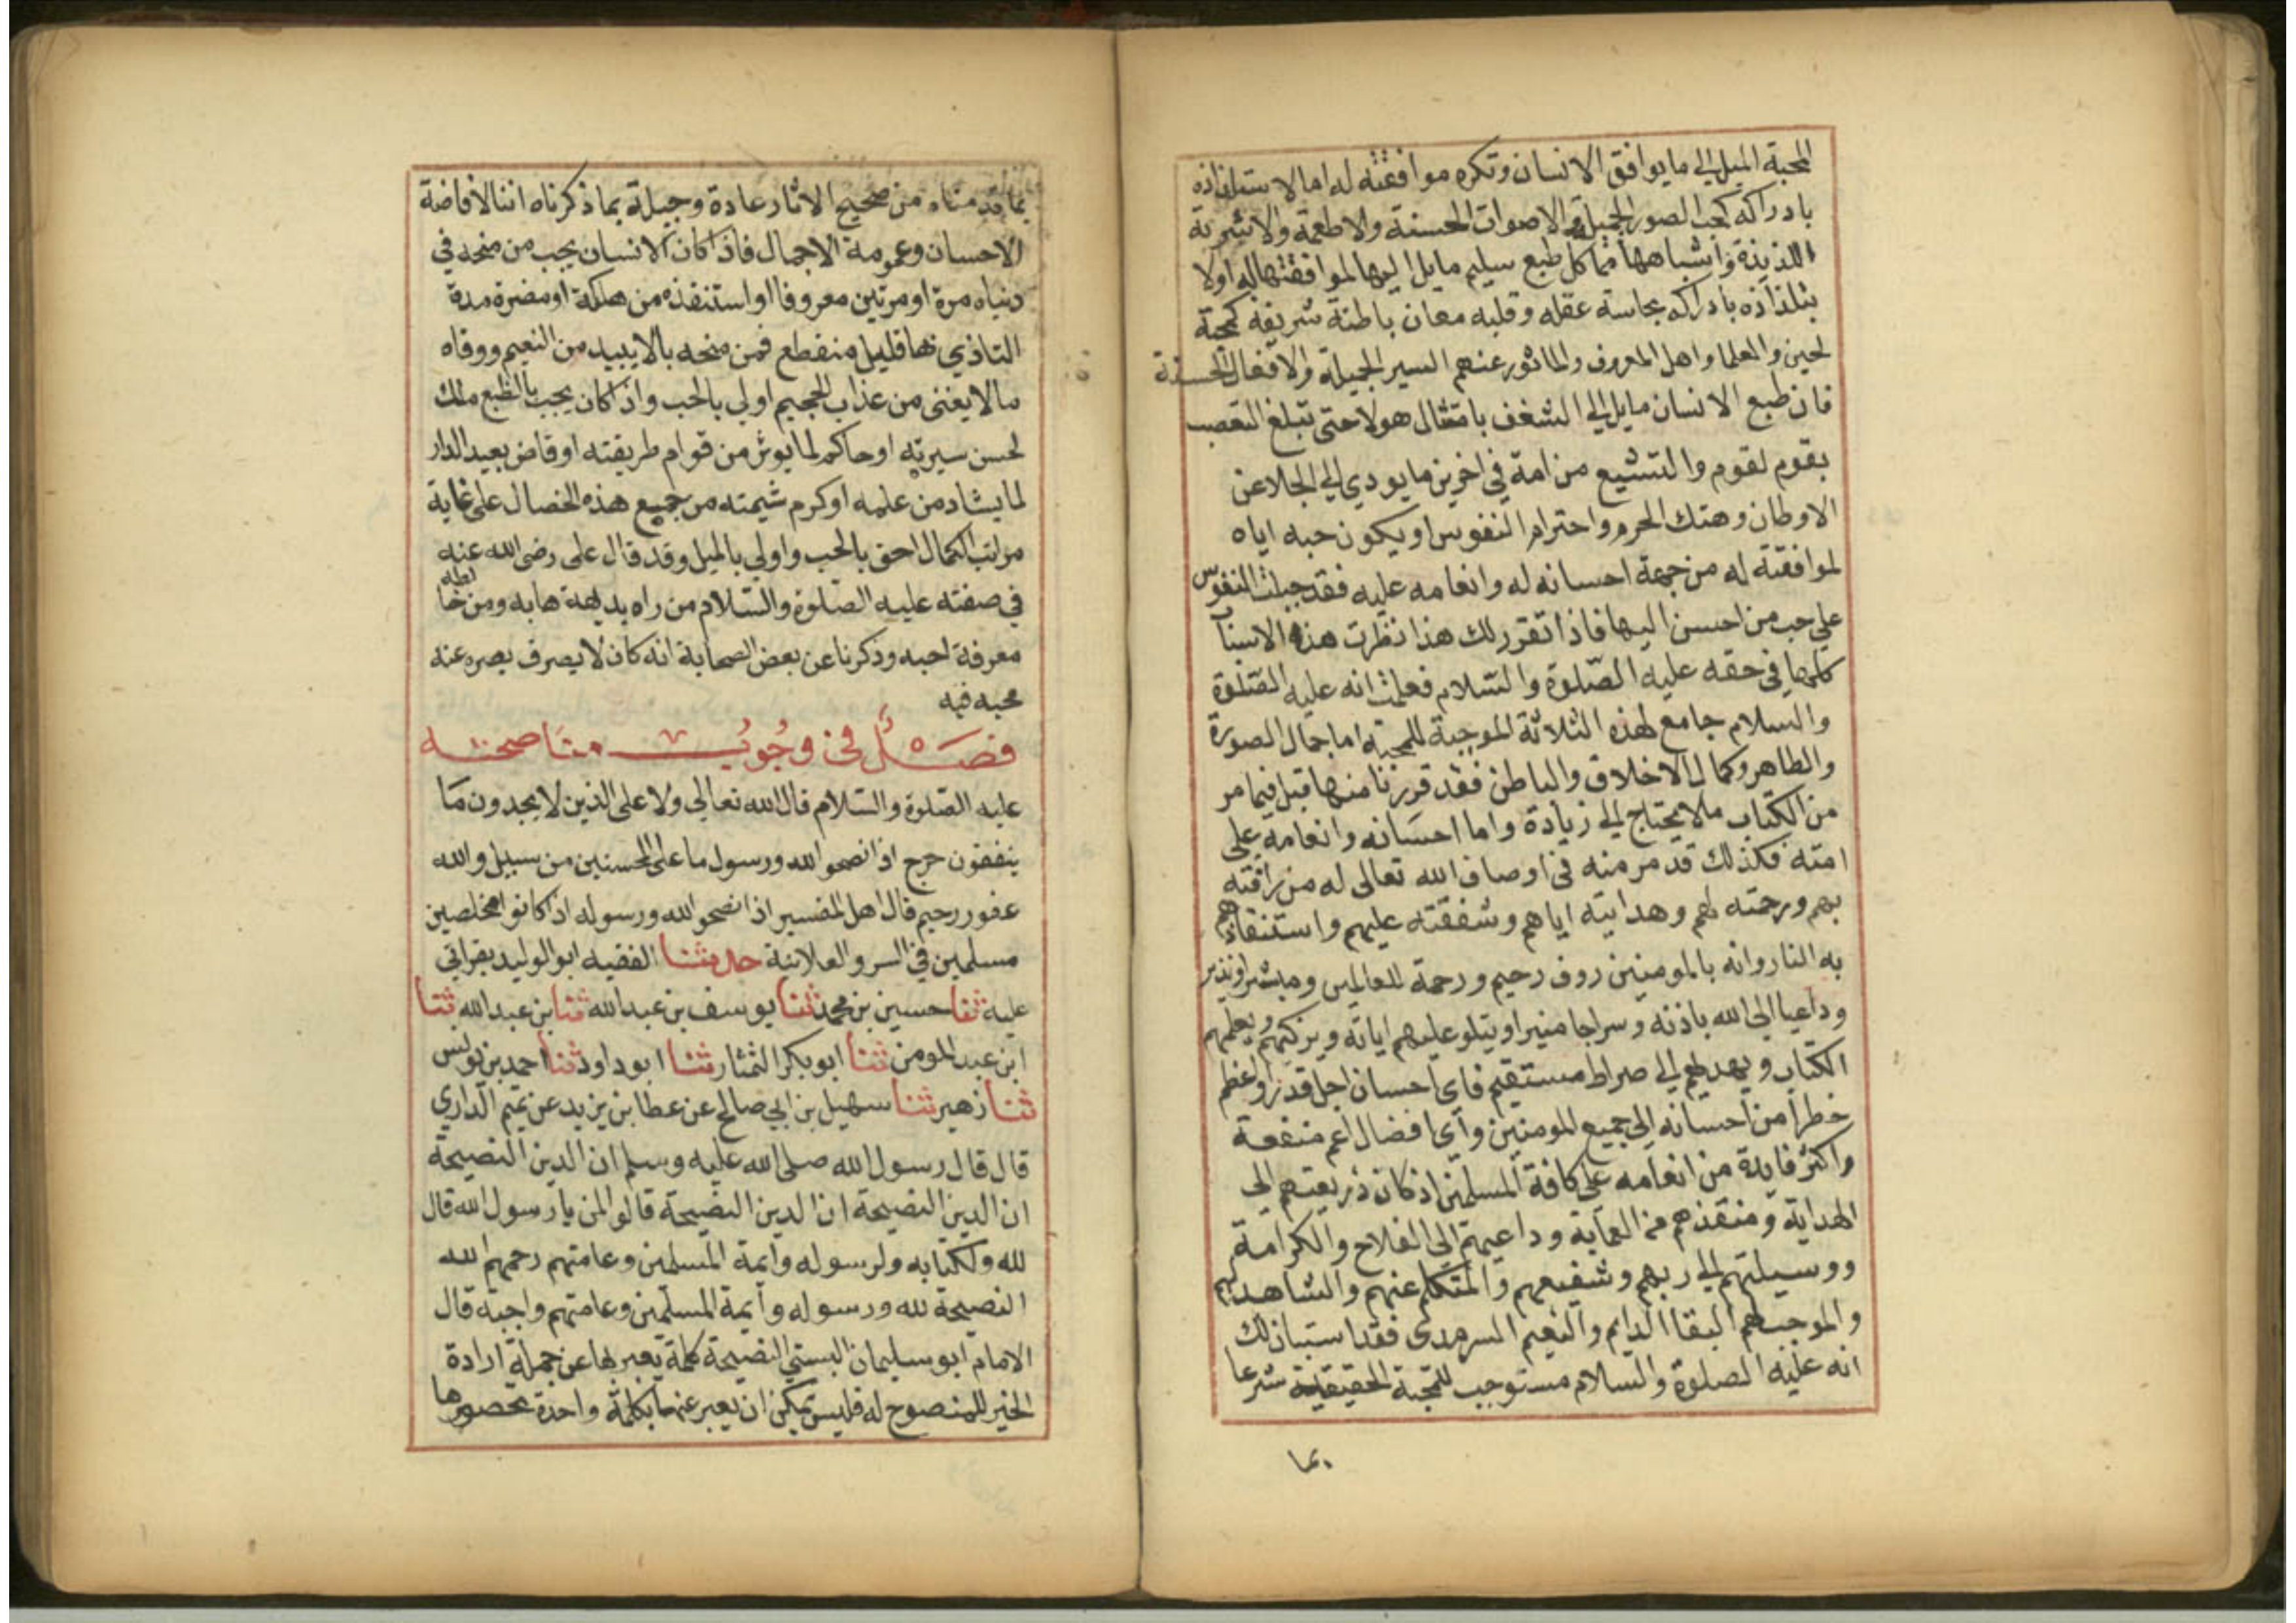 المحبة الميل الي ما يوافق الانسان وتكره موافقته له اما لاستلذاذه
بادراكه كحب الصور الجميلة والاصوات الحسنة ولاطعمة والاشربة
اللذيذة واشباهها مما كل طبع سليم مايل اليها لموافقتها له اولا
بتلذاذه بادراكه بحاسة عقله وقلبه معان باطنة شريفة كمحبة
لحين والعلما واهل المعروف والماثور عنهم السير الجميلة والافعال الحسنة
فان طبع الانسان مايل الي الشغف بامثال هولا حتى تبلغ التعصب
بقوم لقوم والتشيع من امة في اخرين ما يودي الي الجلا عن
الاوطان وهتك الحرم واحترام النفوس او يكون حبه اياه
لموافقته له من جهة احسانه له وانعامه عليه فقد جبلت النفوس
علي حب من احسن اليها فاذا تقرر لك هذا نظرت هذه الاسباب
كلها في حقه عليه الصلوة والسلام فعلمت انه عليه الصلوة
والسلام جامع لهذه الثلاثة الموجبة للمحبة اما جمال الصورة
والظاهر وكمال الاخلاق والباطن فقد قررنا منها قبل فيما مر
من الكتاب مالا يحتاج الي زيادة واما احسانه وانعامه علي
امته فكذلك قد مر منه في اوصاف الله تعالى له من رافته
بهم ورحمته لهم وهدايته اياهم وشفقته عليهم واستنقاذهم
به النار وانه بالمومنين روف رحيم ورحمة للعالمين ومبشرا ونذير
وداعيا الى الله باذنه وسراجا منيرا ويتلو عليهم اياته ويزكيهم ويعلمهم
الكتاب ويهديهم الي صراط مستقيم فاي احسان اجل قدرا واعظم
خطرا من احسانه الى جميع المومنين وأي افضال اعم منفعة
واكثر فايدة من انعامه على كافة المسلمين اذ كان ذريعتهم الى
الهداية ومنقذهم من العماية وداعيهم الى الفلاح والكرامة
ووسيلتهم الي ربهم وشفيعهم والمتكلم عنهم والشاهد لهم
والموجب لهم البقا الدايم والنعيم السرمدى فقد استبان لك
انه عليه الصلوة والسلام مستوجب للمحبة الحقيقية شرعا
بما
بما قدمناه من صحيح الاثار عادة وجبلة بما ذكرناه اننا لافاضة
الاحسان وعمومة الاجمال فاذا كان الانسان يحب من منحه في
دنياه مرة او مرتين معروفا او استنقذه من هلكة او مضرة مدة
التاذي بها قليل منقطع فمن منحه بالايبيد من النعيم ووقاه
مالا يغنى من عذاب الجحيم اولي بالحب واذا كان يحب بالطبع ملك
لحسن سيرته او حاكم لما يوثر من قوام طريقته او قاض بعيد الدار
لما يشاد من علمه او كرم شيمته من جميع هذه الخصال على غاية
مراتب الكمال احق بالحب واولي بالميل وقد قال على رضى الله عنه
في صفته عليه الصلوة والسلام من راه بديهة هابه ومن خالطه
معرفة احبه وذكرنا عن بعض الصحابة انه كان لا يصرف بصره عنه
محبه فيه
فصل في وجوب مناصحته
عليه الصلوة والسلام قال الله تعالي ولا على الذين لا يجدون ما
ينفقون حرج اذا نصحوا لله ورسول ما على المحسنين من سبيل والله
غفور رحيم قال اهل المفسير اذا نصحوا لله ورسوله اذا كانوا مخلصين
مسلمين في السر والعلانية حدثنا الفقيه ابو الوليد بقراتي
عليه ثنا حسين بن محمد ثنا يوسف بن عبد الله ثنا بن عبد الله ثنا
ابن عبد المومن ثنا ابو بكر التمثار ثنا ابو داود ثنا احمد بن يونس
ثنا زهير ثنا سهيل بن ابي صالح عن عطا بن يزيد عن تميم الداري
قال قال رسول الله صلى الله عليه وسلم ان الدين النصيحة
ان الدين النصيحة ان الدين النصيحة قالوا لمن يا رسول الله قال
لله ولكتابه ولرسوله وأيمة المسلمين وعامتهم رحمهم الله
النصيحة لله ورسوله وأيمة المسلمين وعامتهم واجبة قال
الامام ابو سليمان البستي النصيحة كلمة يعبر بها عن جملة ارادة
الخير للمنصوح له فليس يمكن ان يعبر عنها بكلمة واحدة تحصرها